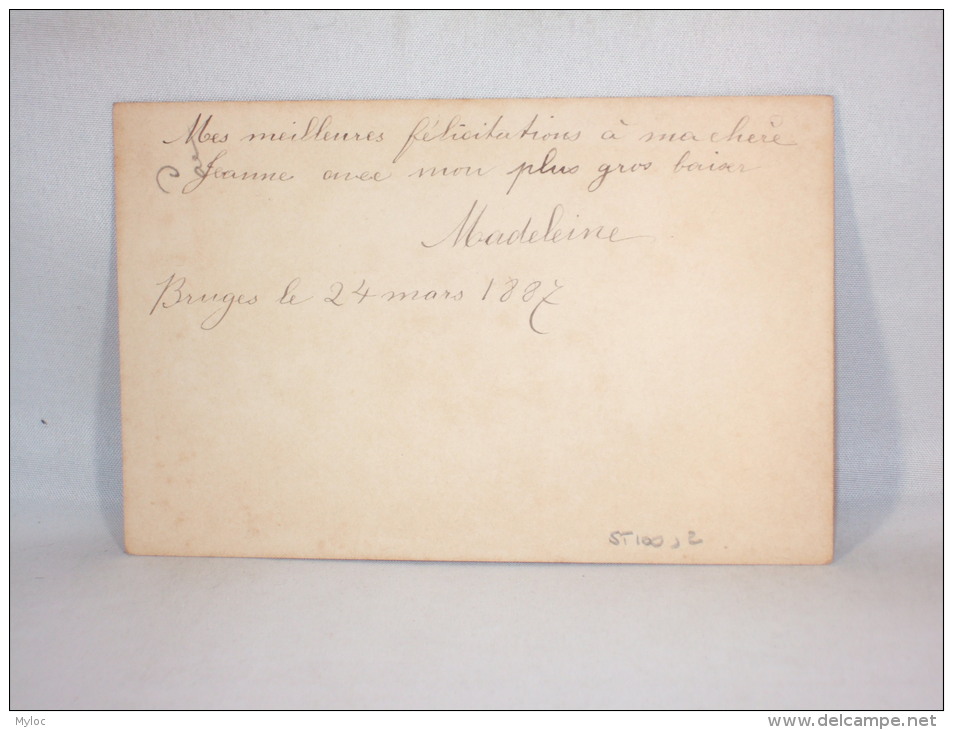 Mes meilleures félicitations à ma chère
Jeanne avec mon plus gros baiser
Madeleine
Bruges le 24 mars 1887
ST100,2
Myloc
www.delcampe.net